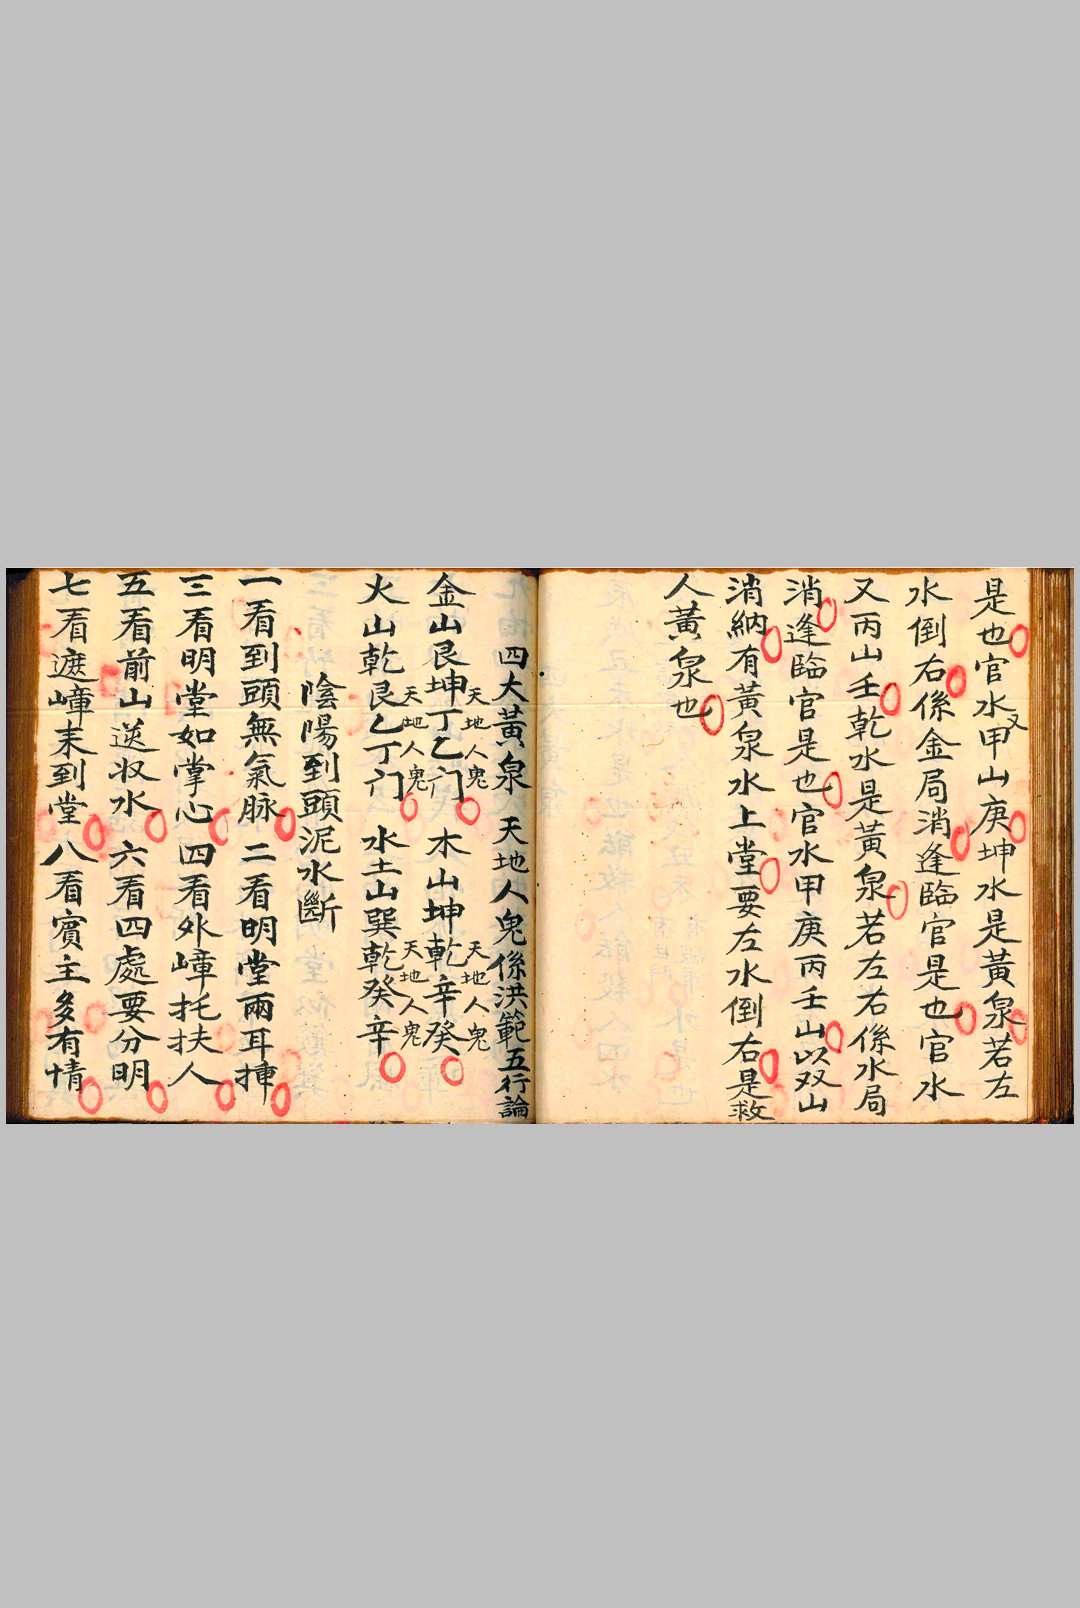 是也官水又甲山庚坤水是黃泉若左
水倒右係金局消逢臨官是也官水
又丙山壬乾水是黃泉若左右係水局
消逢臨官是也官水甲庚丙壬山以双山
消納有黃泉水上堂要左水倒右是救
人黃泉也
四大黃泉 天地人鬼係洪範五行論
金山艮坤丁乙门 木山坤乾辛癸
天地人鬼 天地人鬼
火山乾艮乙丁门 水土山巽乾癸辛
天地人鬼 天地人鬼
陰陽到頭泥水斷
一看到頭無氣脉 二看明堂兩耳揷
三看明堂如掌心 四看外嶂托扶人
五看前山送收水 六看四處要分明
七看遮嶂未到堂 八看賓主多有情